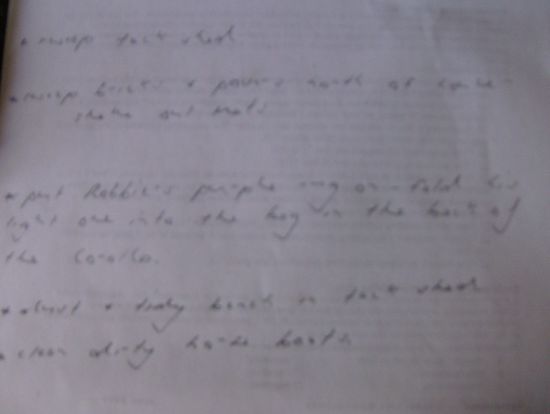 * sweep tack shed
* sweep bricks & pavers north of house -
shake out mats
* put Robbie's purple rug on - fold his
light one into the bag in the back of
the Corolla.
* dust & tidy bench in tack shed
* clean dirty horse boots